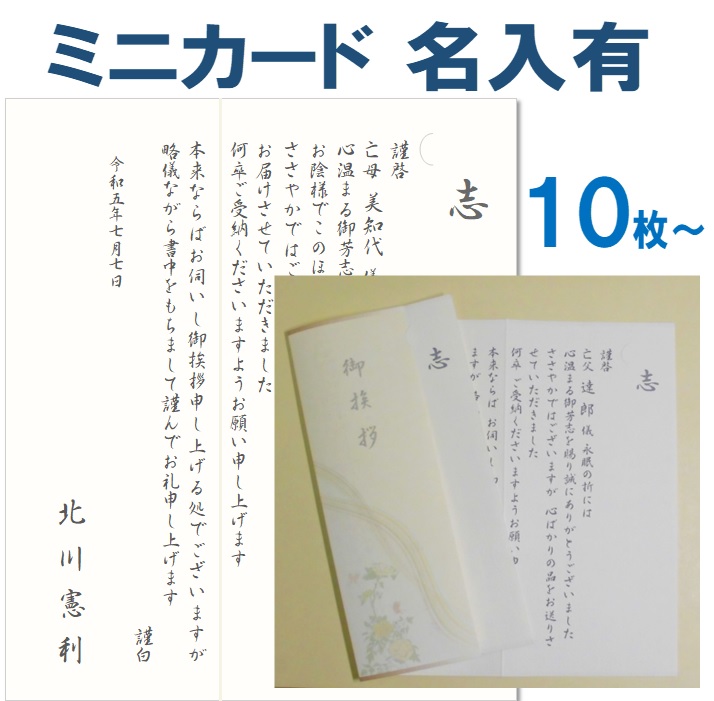 ミニカード 名入有
10枚～
志
謹啓
亡母 美知代
心温まる御芳志
お陰様でこのほ
ささやかではご
お届けさせていただきました
何卒ご受納くださいますようお願い申し上げます
本来ならばお伺いし御挨拶申し上げる処でございますが
略儀ながら書中をもちまして謹んでお礼申し上げます
謹白
令和五年七月七日
北川憲利
御挨拶
志
志
謹啓
亡父 達郎 儀 永眠の折には
心温まる御芳志を賜り誠にありがとうございました
ささやかではございますが 心ばかりの品をお送りさ
せていただきました
何卒 ご受納くださいますようお願い
本来ならば お伺いし
ますが